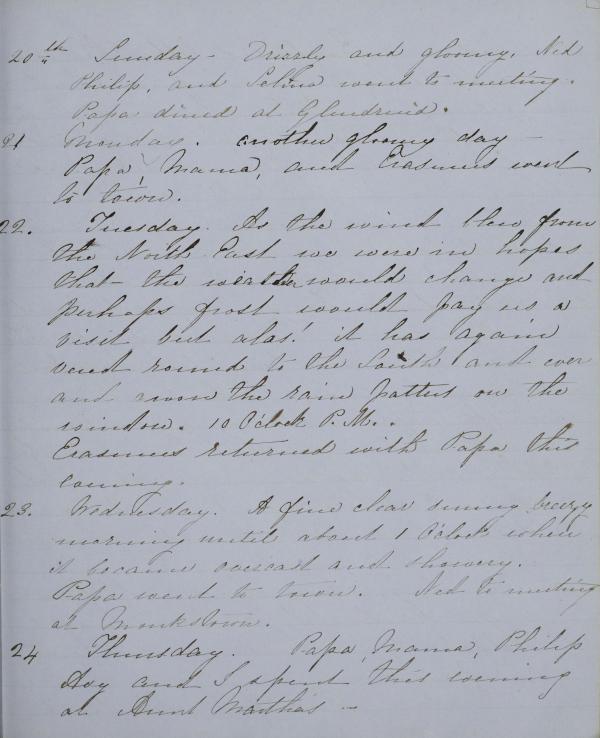 20th Sunday - Drizzly and gloomy. Ned
Philip, and Selina went to meeting.
Papa dined at Glendruid.
21 Monday. another gloomy day -
Papa, Mama, and Erasmus went
to town.
22. Tuesday. As the wind blew from
the North East we were in hopes
that the weather would change and
perhaps frost would pay us a
visit but alas! it has again
veered round to the South and ever
and anon the rain patters on the
window. 10 O'clock P.M..
Erasmus returned with Papa this
evening.
23. Wednesday. A fine clear sunny breezy
morning until about 1 O'clock when
it became overcast and showery.
Papa went to town. Ned to meeting
at Monkstown.
24 Thursday. Papa, Mama, Philip
and I spent this evening
at Aunt Martha's -